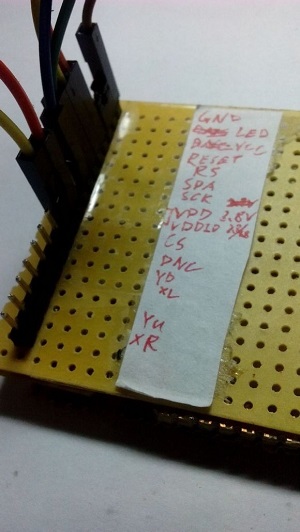 GND
LED
VCC
RESET
RS
SDA
SCK
VDD 2.8V
VDDIO
CS
DNC
YD
XL
YU
XR